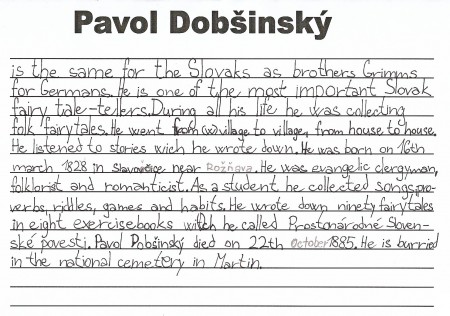 Pavol Dobšinský
is the same for the Slovaks as brothers Grimms
for Germans. He is one of the most important Slovak
fairy tale-tellers. During all his life he was collecting
folk fairytales. He went from village to village, from house to house.
He listened to stories wich he wrote down. He was born on 16th
march 1828 in near Rožňava. He was evangelic clergyman,
folklorist and romanticist. As a student he collected songs, pro-
verbs, riddles, games and habits. He wrote down ninety fairytales
in eight exercisebooks witch he called Prostonárodné Sloven-
ské povesti. Pavol Dobšinský died on 22th October 1885. He is burried
in the national cemetery in Martin.